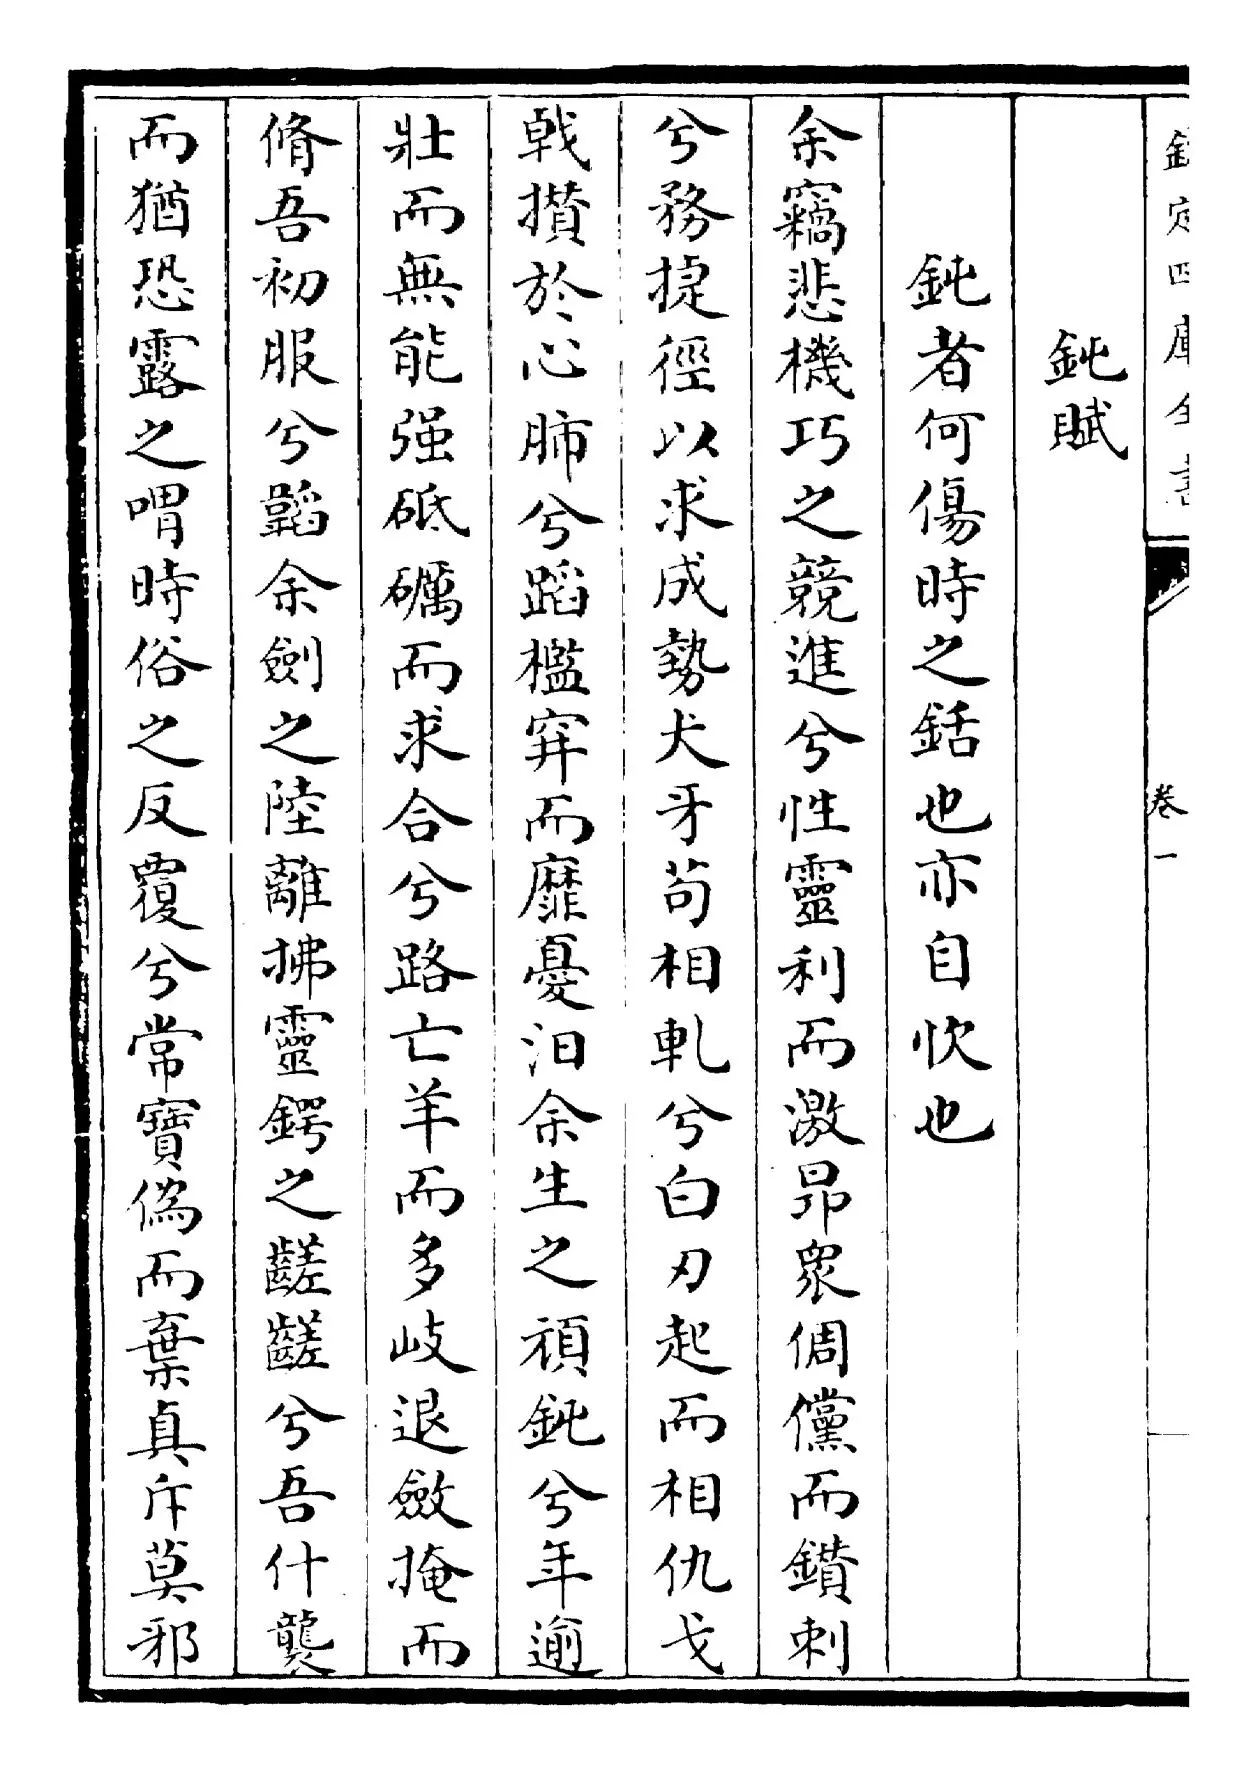 欽定四庫全書
卷一
鈍賦
鈍者何傷時之銛也亦自忺也
余竊悲機巧之競進兮性靈利而激昻衆倜儻而鑚刺
兮務捷徑以求成勢犬牙苟相軋兮白刃起而相仇戈
戟攅於心肺兮蹈檻穽而靡憂汨余生之頑鈍兮年逾
壯而無能强砥礪而求合兮路亡羊而多岐退斂掩而
脩吾初服兮韜余劍之陸離拂靈鍔之齹齹兮吾什襲
而猶恐露之喟時俗之反覆兮常寶偽而棄真斥莫邪